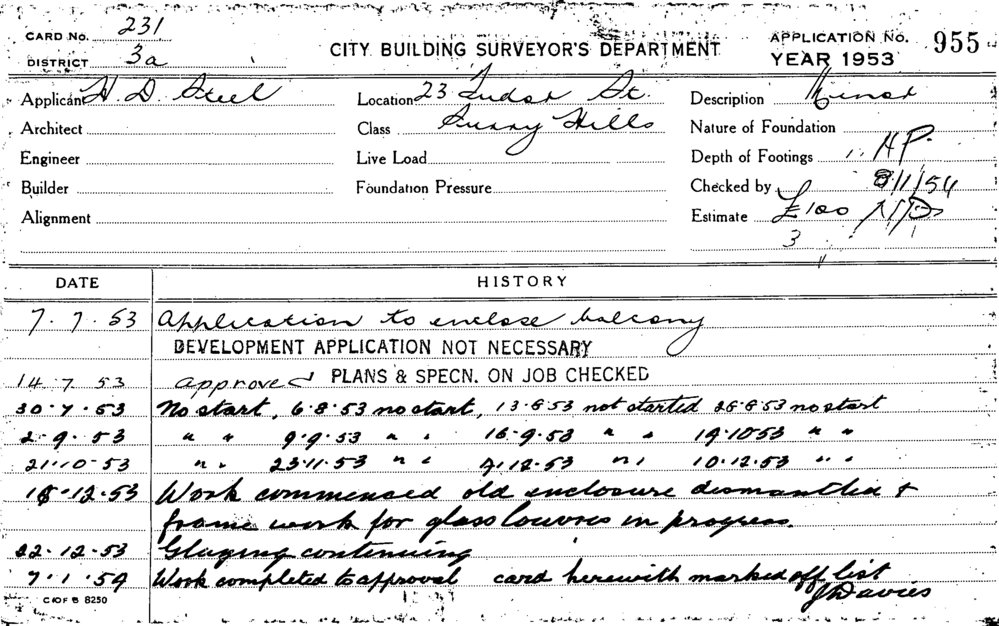 CARD No. 231
DISTRICT 3a
CITY BUILDING SURVEYOR'S DEPARTMENT
APPLICATION No. 955
YEAR 1953
Applicant H. D. Steel Location 23 Tudor St. Description Minor
Architect Class Surry Hills Nature of Foundation
Engineer Live Load Depth of Footings HP.
Builder Foundation Pressure Checked by 8/1/54
Alignment Estimate £100
3
DATE HISTORY
7. 7. 53 Application to enclose balcony
DEVELOPMENT APPLICATION NOT NECESSARY
14.7.53 approved PLANS & SPECN. ON JOB CHECKED
30.7.53 No start, 6.8.53 no start, 13.8.53 not started 26.8.53 no start
2.9.53 " " 9.9.53 " " 16.9.53 " " 19.10.53 " "
21.10.53 " " 23.11.53 " " 12.53 " " 10.12.53 " "
18.12.53 Work commenced old enclosure dismantled &
frame work for glass louvres in progress.
22.12.53 Glazing continuing
7.1.54 Work completed to approval card herewith marked off list
J Davies
C OF S 8250